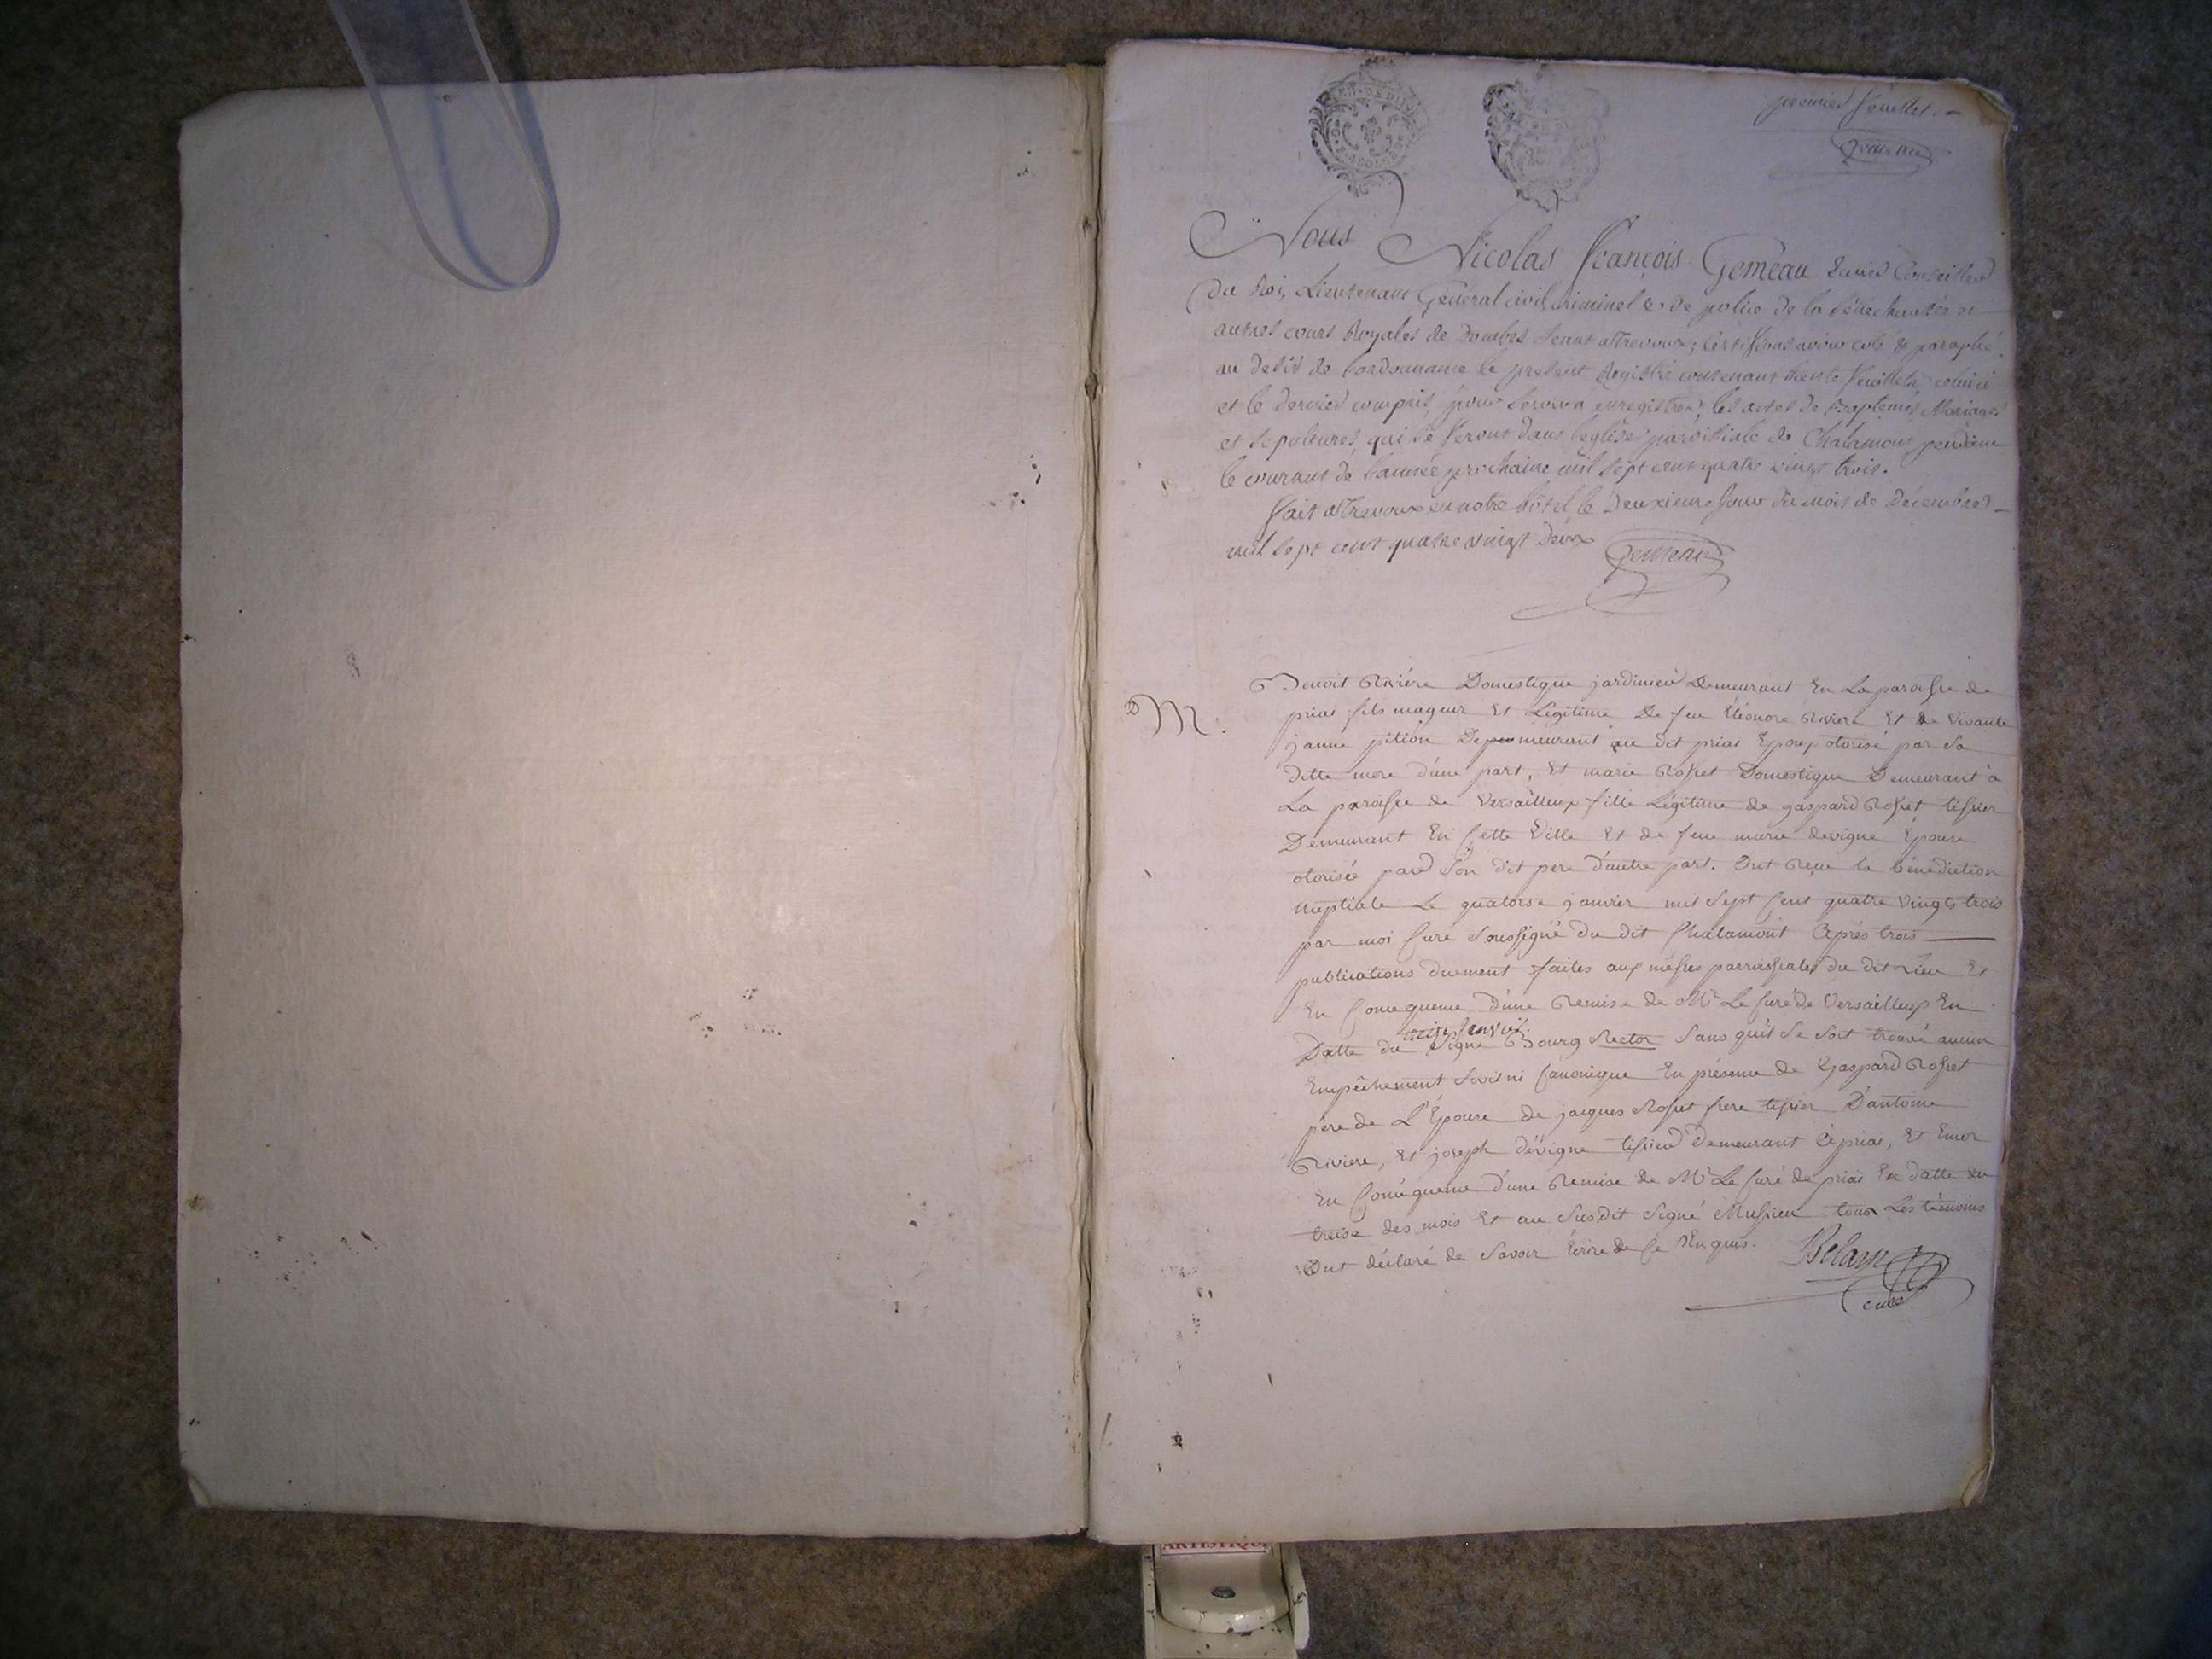 premier feuillet.
Gemeau
Nous Nicolas François Gemeau Ecuier Conseiller
du Roi, Lieutenant Général civil, criminel & de police de la sénéchaussée et
autres cours Royales de Dombes séant a Trevoux; certifions avoir coté & paraphé
au desir de l'ordonnance le present Registre contenant trente feuillets, celuici
et le dernier compris, pour servir a enregistrer, les actes de Baptemes, Mariages
et sepultures, qui se feront dans l'eglise paroissiale de Chalamont pendant
le courant de l'année prochaine mil sept cent quatre vingt trois.
fait a Trevoux en notre hôtel, le deuxieme jour du mois de decembre
mil sept cent quatre vingt deux Gemeau
M.
Benoit Riviere Domestique jardinier Demeurant En La paroisse de
priai fils mageur Et Légitime De feu Eléonore Riviere Et de Vivante
janne pition Demeurant au dit priai Epoux otorisé par Sa
ditte mere d'une part, Et marie Rosset Domestique Demeurant à
La paroisse de Versailleux fille Légitime de gaspard Rosset tissier
Demeurant En Cette Ville Et de feue marie devigne Epouse
otorisée par Son dit pere d'autre part. Ont Reçue la bénédiction
nuptiale Le quatorse janvier mil Sept Cent quatre vingts trois
par moi Curé Soussigné du dit Chalamont Après trois
publications duement faites aux messes parroissiales du dit Lieu Et
En Consequence d'une Remise de Mr Le Curé de Versailleux En
treize janvier
Datte du Signé Bourg Rector Sans qu'il Se Soit trouvé aucun
Empêchement Civil ni Canonique En présence de Gaspard Rosset
père de L'Epouse de jacques Rosset frere tissier D'antoine
Riviere, Et joseph dévigne tissier Demeurant à priai, Et
En Conséquence d'une Remise de Mr Le Curé de priai En datte du
treise des mois Et an Susdit Signé Mussieu tous Les témoins
Ont déclaré de Savoir Ecrire de Ce Enquis. Belaye
curé